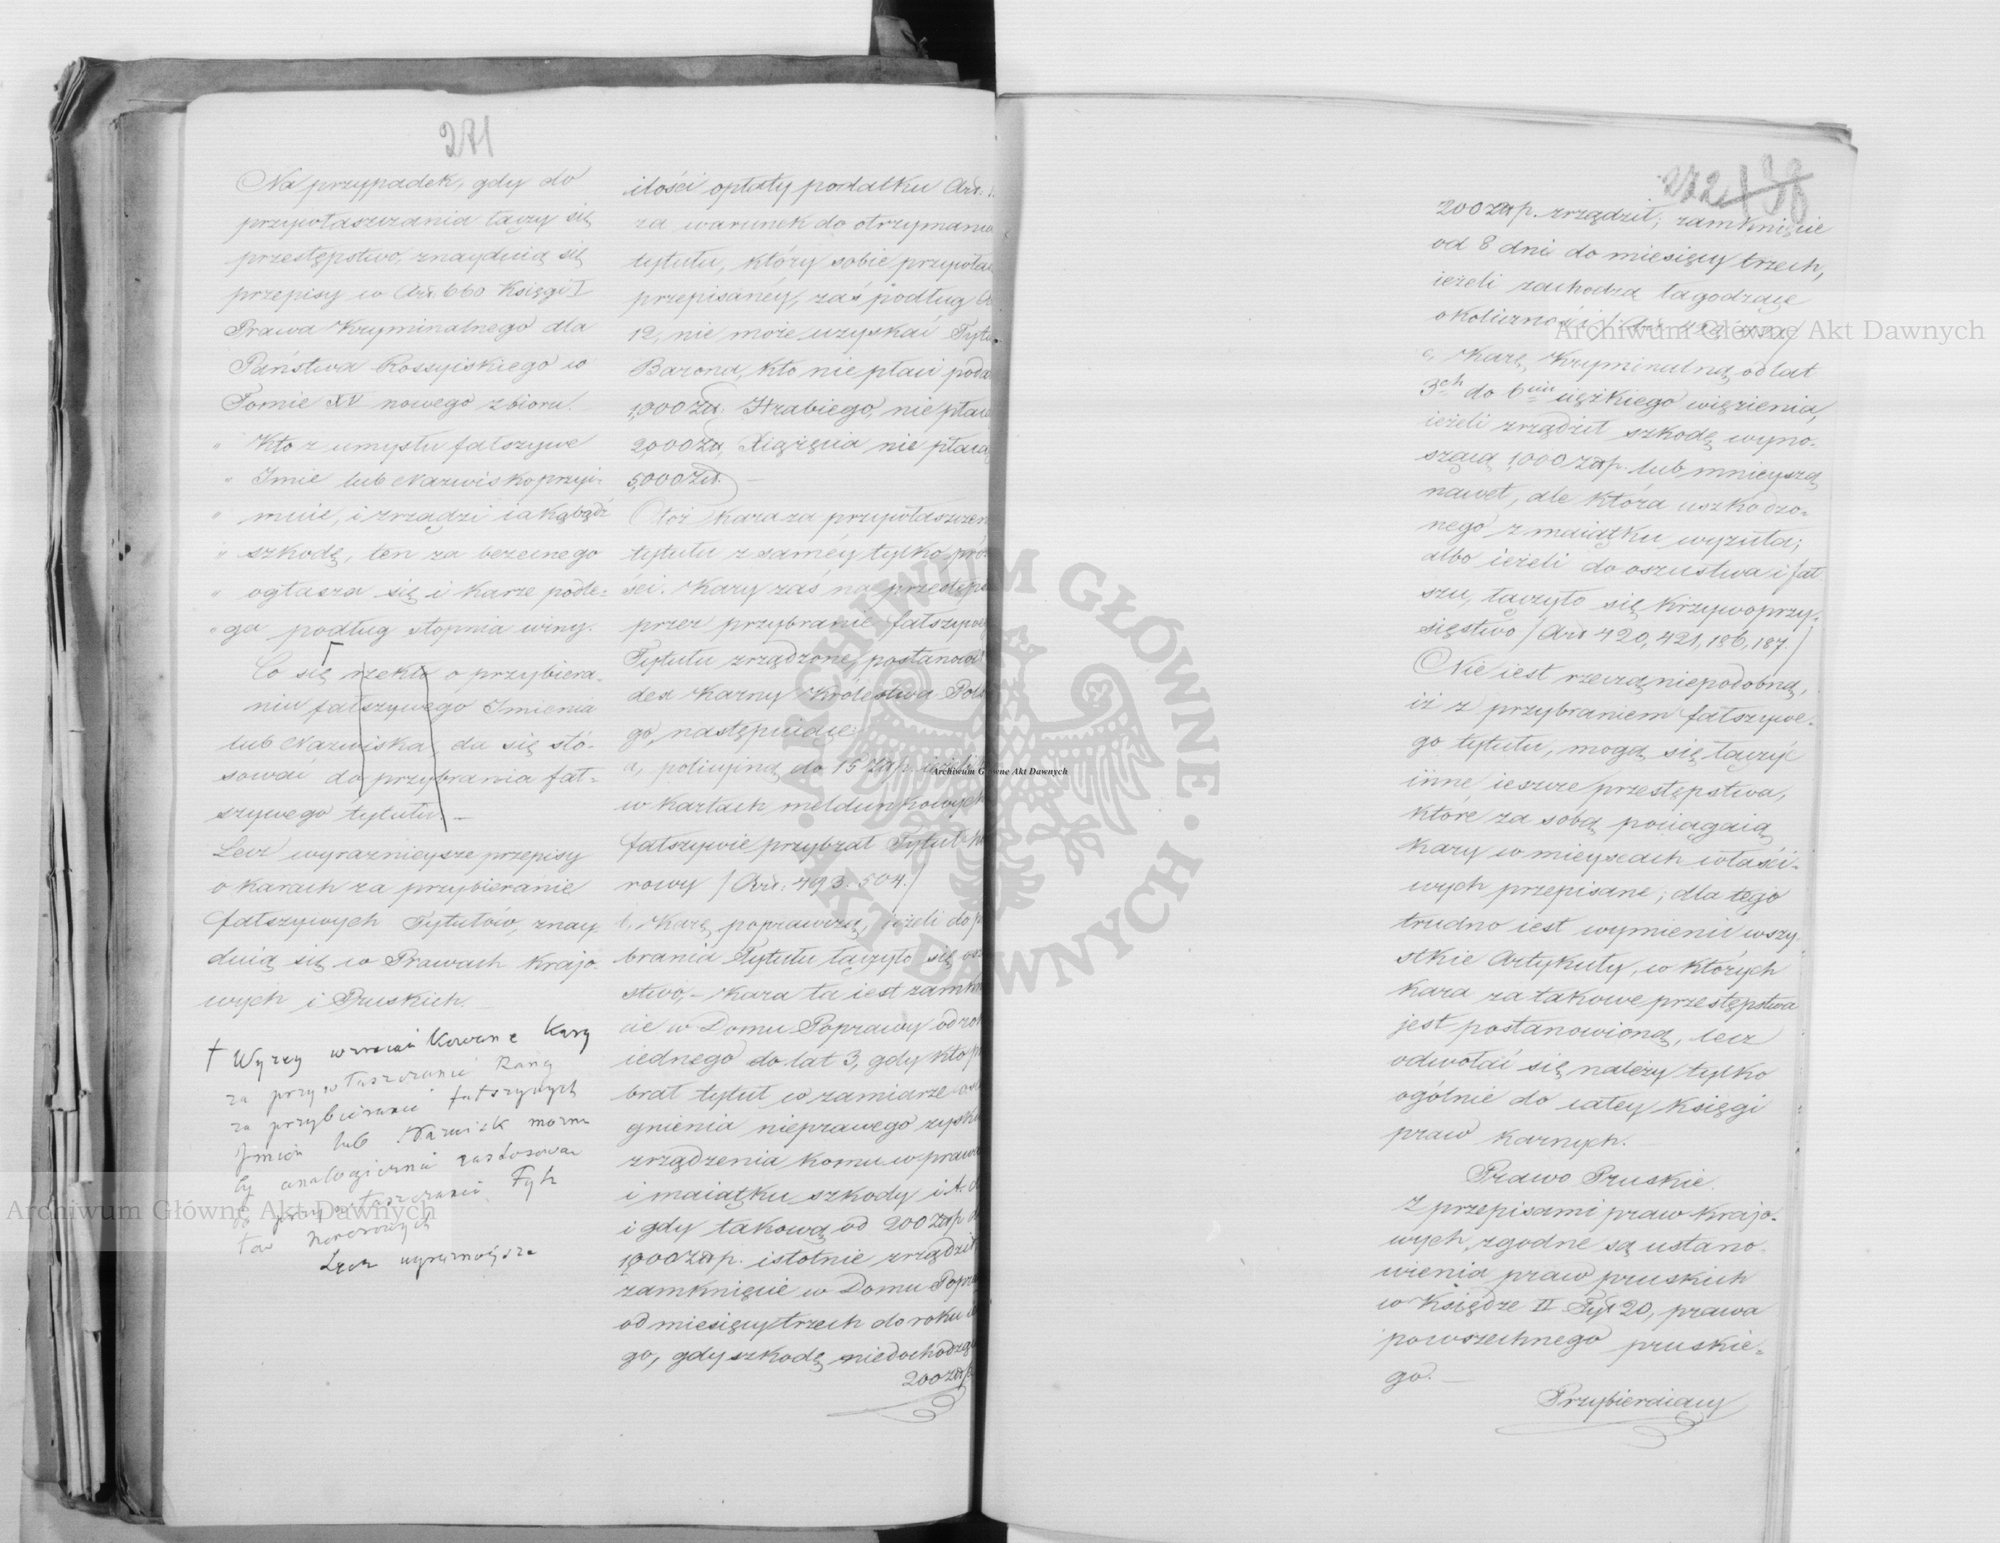 271
Na przypadek, gdy do
przywłaszczania łączy się
przestępstwo, znayduią się
przepisy w Art. 660 Księgi I
Prawa Kryminalnego dla
Państwa Rossyiskiego w
Tomie XV nowego zbioru. –
" Kto z umysłu fałszywe
" Imie lub Nazwisko przyi-
" muie, i zrządzi iakąbądź
" szkodę, ten za bezecnego
" ogłasza się i karze podle-
" ga podług stopnia winy.
Co się rzekło o przybiera-
niu fałszywego Imienia
lub Nazwiska, da się stó-
sować do przybrania fał-
szywego tytułu. –
Lecz wyraznieysze przepisy
o karach za przybieranie
fałszywych Tytułów, znay
duią się w Prawach krajo-
wych i Pruskich. –
† Wyżey wzmiankowane kary
za przywłaszczanie Rangi
za przybieranie fałszywych
Imion lub Nazwisk można
by analogicznie zastosować
do przywłaszczania Tytu
łów honorowych
Lecz wyraźniejsze
ilości opłaty podatku Art.
za warunek do otrzymania
tytułu, który sobie przywła
przepisanéy, zaś podług A
12, nie może uzyskać Tytu
Barona, kto nie płaci poda
1,000 Zł. Hrabiego, nie płac
2,000 Zł, Xiążęcia nie płacą
5,000 Zł. –
Otóż kara za przywłaszczen
tytułu z saméy tylko próż
ści. Kary zaś na przestęps
przez przybranie fałszyweg
Tytułu zrządzone, postanowił
dex Karny Królestwa Pols
go, następuiące:
a, policyiną do 15 Złp. ieżeli k
w kartach meldunkowych
fałszywie przybrał Tytuł ho
rowy / Art: 493. 504. /
b. Karę poprawczą, ieżeli do p
brania Tytułu łączyło się osz
stwo, – Kara ta iest zamkn
cie w Domu Poprawy od rok
iednego do lat 3, gdy kto p
brał tytuł w zamiarze osi
gnienia nieprawego zysku
zrządzenia komu w praw
i maiątku szkody i t. d
i gdy takową od 200 Złp d
1,000 Złp. istotnie zrządził
zamknięcie w Domu Popra
od miesięcy trzech do roku ie
go, gdy szkodę niedochodzą
200 złp
272 138
200 Złp. zrządził; zamknięcie
od 8 dni do miesięcy trzech,
ieżeli zachodzą łagodzące
okoliczności
c, Karę Kryminalną od lat
3ch do 6ciu ciężkiego więzienia,
ieżeli zrządził szkodę wyno-
szącą 1,000 Złp. lub mnieyszą
nawet, ale która uszkodzo-
nego z maiątku wyzuła;
albo ieżeli do oszustwa i fał
szu, łączyło się krzywoprzy-
sięstwo / Art 420, 421, 186, 187. /
Nie iest rzeczą niepodobną,
iż z przybraniem fałszywe-
go tytułu, mogą się łączyć
inne ieszcze przestępstwa,
które za sobą pociągaią
kary w mieyscach właści-
wych przepisane; dla tego
trudno iest wymienić wszy-
stkie Artykuły, w których
kara za takowe przestępstwa
jest postanowioną, lecz
odwołać się należy tylko
ogólnie do całey księgi
praw karnych.
Prawo Pruskie.
Z przepisami praw krajo-
wych, zgodne są ustano-
wienia praw pruskich
w Księdze II Tyt 20, prawa
powszechnego pruskie-
go. –
Przybieraiący
ARCHIWUM GŁÓWNE · AKT DAWNYCH ·
Archiwum Główne Akt Dawnych
Archiwum Główne Akt Dawnych
Archiwum Główne Akt Dawnych